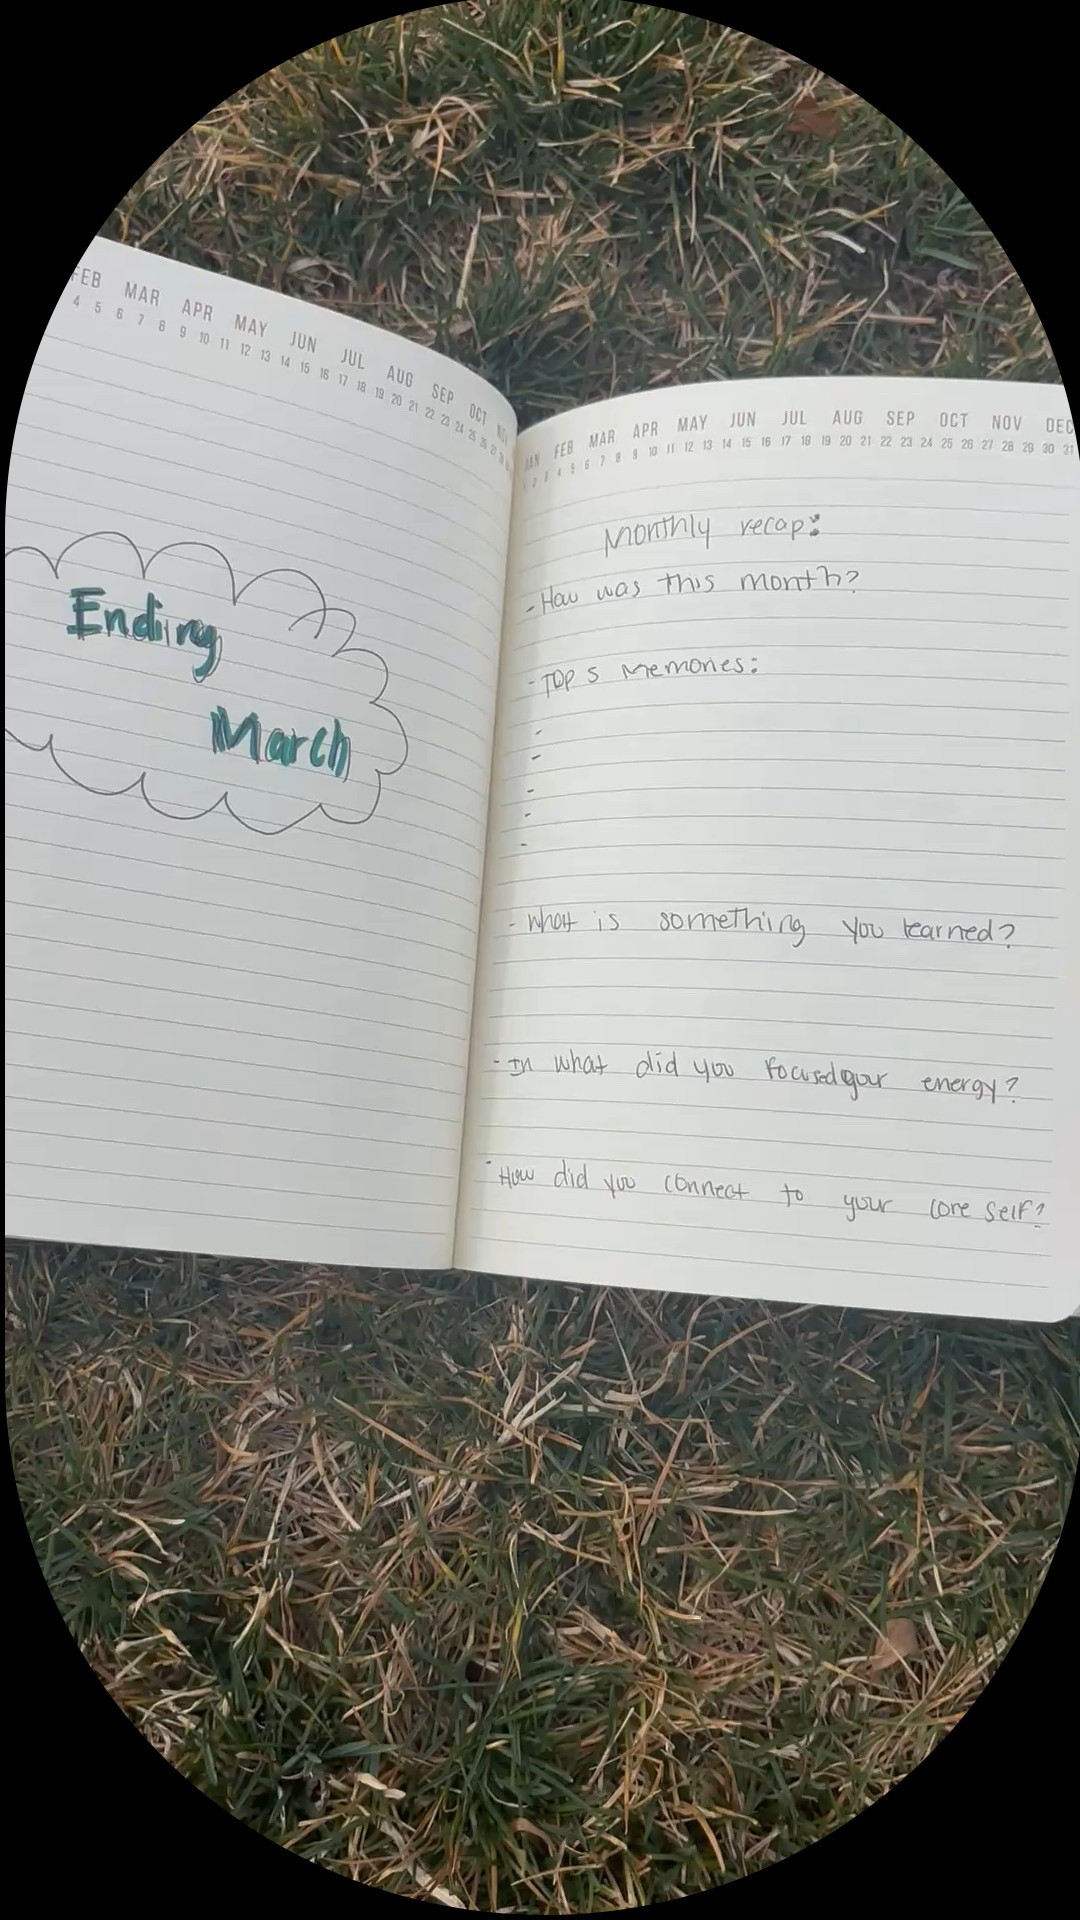 FEB MAR APR MAY JUN JUL AUG SEP OCT NOV
4 5 6 7 8 9 10 11 12 13 14 15 16 17 18 19 20 21 22 23 24 25 26 27 28
Ending
March
JAN FEB MAR APR MAY JUN JUL AUG SEP OCT NOV DEC
1 2 3 4 5 6 7 8 9 10 11 12 13 14 15 16 17 18 19 20 21 22 23 24 25 26 27 28 29 30 31
Monthly recap:
- How was this month?
- TOP 5 Memories:
-
-
-
-
-
- What is something you learned?
- In what did you focused your energy?
- How did you connect to your core self?